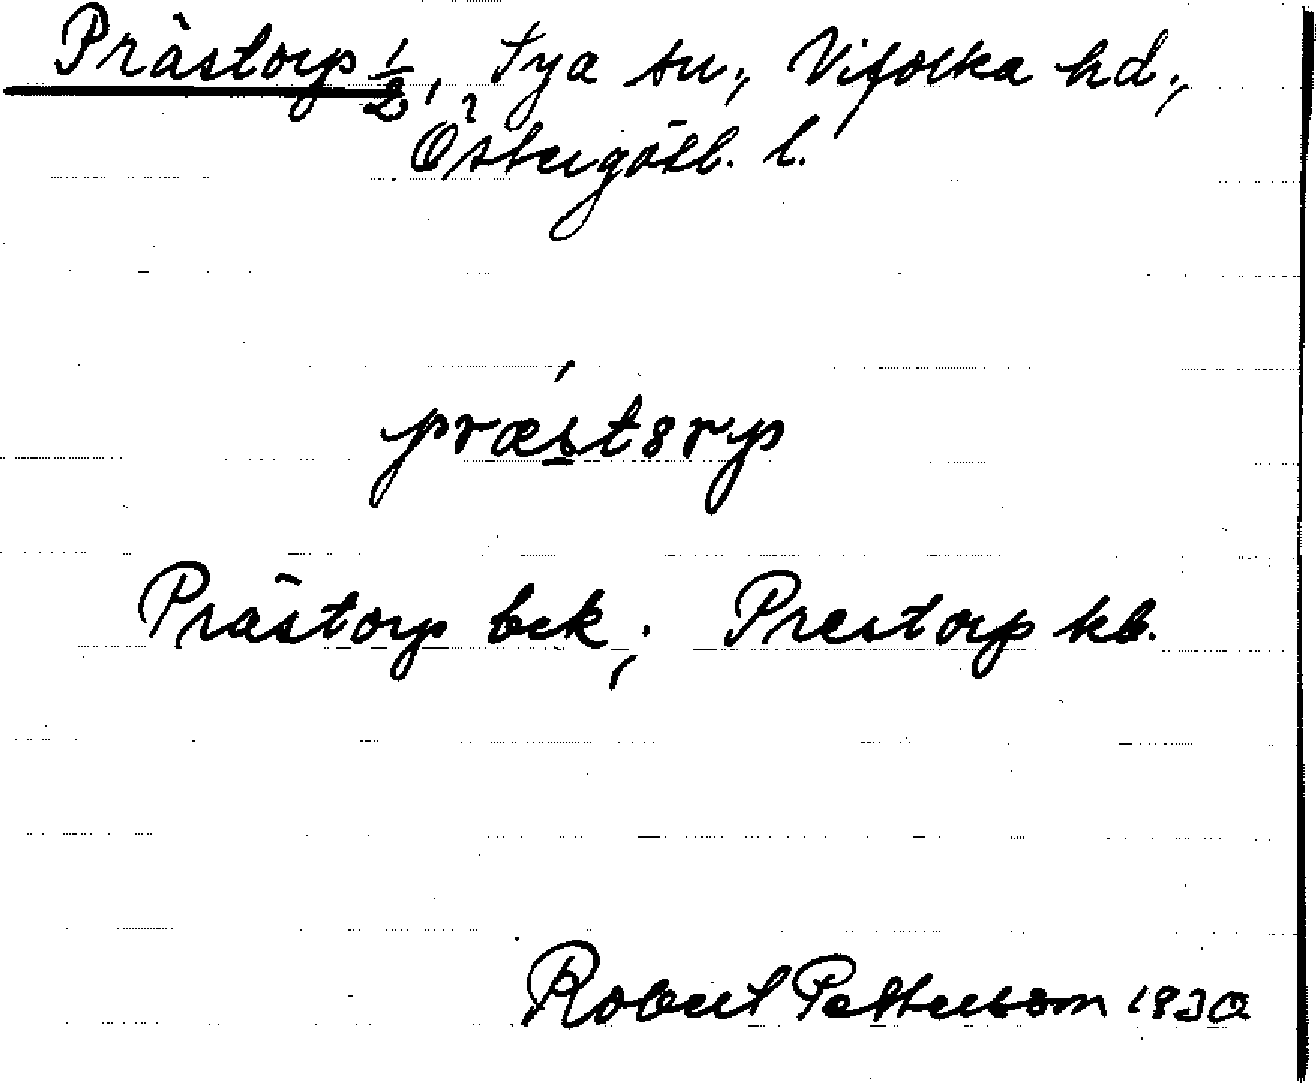 Prästorp 1/2, Sya sn, Vifolka hd.,
Östergötl. l.
præ´stsrp
Prästorp bek; Prestorp kb.
Robert Petterson 1930